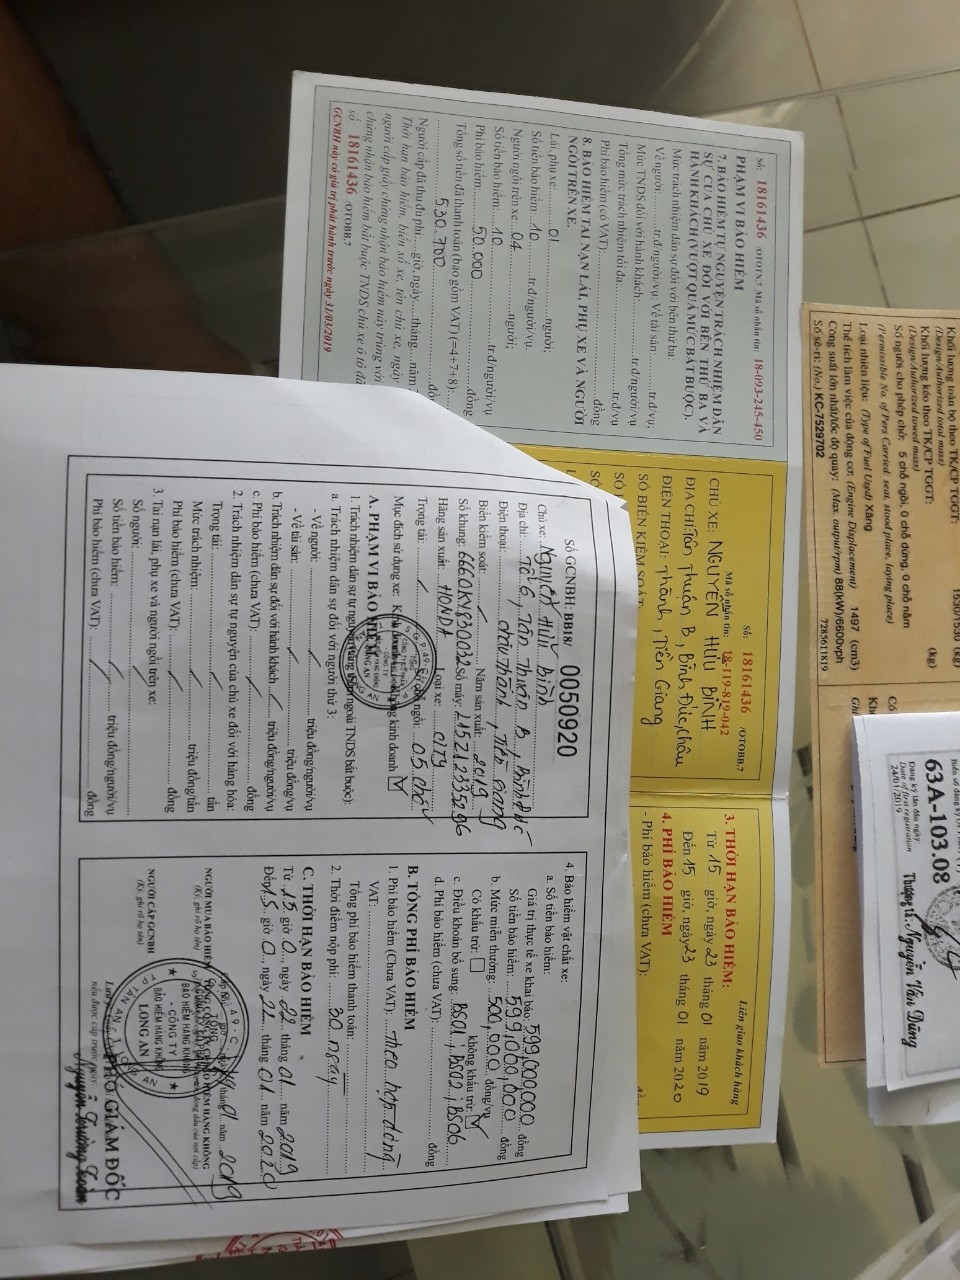 Số: 18161436 /OTOTN.7 Mã số nhận tin: 18-093-245-450
PHẠM VI BẢO HIỂM
7. BẢO HIỂM TỰ NGUYỆN TRÁCH NHIỆM DÂN
SỰ CỦA CHỦ XE ĐỐI VỚI BÊN THỨ BA VÀ
HÀNH KHÁCH (VƯỢT QUÁ MỨC BẮT BUỘC).
Mức trách nhiệm dân sự đối với bên thứ ba:
Về người:.......tr.đ/người/vụ. Về tài sản:.......tr.đ/vụ;
Mức TNDS đối với hành khách:.......tr.đ/người/vụ
Tổng mức trách nhiệm tối đa:.......tr.đ/vụ
Phí bảo hiểm (có VAT):.......đồng
8. BẢO HIỂM TAI NẠN LÁI, PHỤ XE VÀ NGƯỜI
NGỒI TRÊN XE.
Lái, phụ xe:...01...người;
Số tiền bảo hiểm:...10...tr.đ/người/vụ.
Người ngồi trên xe:...04...người;
Số tiền bảo hiểm:...10...tr.đ/người/vụ
Phí bảo hiểm:...50.000...đồng
Tổng số tiền đã thanh toán (bao gồm VAT) (=4+7+8):
530.700 đồ
Người cấp đã thu đủ phí.....giờ, ngày.....tháng.....năm
Thời hạn bảo hiểm, biển số xe, tên chủ xe, ngày
người cấp giấy chứng nhận bảo hiểm này trùng với
chứng nhận bảo hiểm bắt buộc TNDS chủ xe ô tô đã
số: 18161436 /OTOBB.7
GCNBH này có giá trị phát hành trước ngày 31/03/2019
Số: 18161436 /OTOBB.7
Mã số nhận tin: 18-119-819-042
CHỦ XE: NGUYỄN HỮU BÌNH
ĐỊA CHỈ: Tân Thuận B, Bình Đức, Châu
Thành, Tiền Giang
ĐIỆN THOẠI:
SỐ BIỂN KIỂM SOÁT:
Liên giao khách hàng
3. THỜI HẠN BẢO HIỂM:
Từ 15 giờ, ngày 23 tháng 01 năm 2019
Đến 15 giờ, ngày 23 tháng 01 năm 2020
4. PHÍ BẢO HIỂM
- Phí bảo hiểm (chưa VAT):
Số GCNBH: BB18/ 0050920
Chủ xe: Nguyễn Hữu Bình
Địa chỉ: Tổ 6, Tân Thuận B, Bình Đức
Châu Thành, Tiền Giang
Điện thoại:
Biển kiểm soát: Năm sản xuất: 2019
Số khung: Số máy:
Hãng sản xuất: HONDA Loại xe: CITY
Trọng tải: Số chỗ ngồi: 05 chỗ
Mục đích sử dụng xe: kinh doanh
A. PHẠM VI BẢO HIỂM
1. Trách nhiệm dân sự tự nguyện (ngoài TNDS bắt buộc):
a. Trách nhiệm dân sự đối với người thứ 3:
- Về người: triệu đồng/người/vụ
- Về tài sản: triệu đồng/vụ
b. Trách nhiệm dân sự đối với hành khách: triệu đồng/người/vụ
c. Phí bảo hiểm (chưa VAT): đồng
2. Trách nhiệm dân sự của chủ xe đối với hàng hóa:
Trọng tải: tấn
Mức trách nhiệm: triệu đồng/tấn
Phí bảo hiểm (chưa VAT): đồng
3. Tai nạn lái, phụ xe và người ngồi trên xe:
Số người:
Số tiền bảo hiểm: triệu đồng/người/vụ
Phí bảo hiểm (chưa VAT): đồng
4. Bảo hiểm vật chất xe:
a. Số tiền bảo hiểm:
Giá trị thực tế xe khai báo: 599,000,000 đồng
Số tiền bảo hiểm: 599,000,000 đồng
b. Mức miễn thường: 500,000 đồng/vụ
Có khấu trừ: không khấu trừ:
c. Điều khoản bổ sung: BS01, BS02, BS06
d. Phí bảo hiểm (chưa VAT): đồng
B. TỔNG PHÍ BẢO HIỂM
1. Phí bảo hiểm (Chưa VAT): theo hợp đồng
VAT:
Tổng phí bảo hiểm thanh toán:
2. Thời điểm nộp phí: 30 ngày
C. THỜI HẠN BẢO HIỂM
Từ 15 giờ 0, ngày 22 tháng 01 năm 2019
Đến 15 giờ 0, ngày 22 tháng 01 năm 2020
NGƯỜI MUA BẢO HIỂM
(Ký, ghi rõ họ tên)
NGƯỜI CẤP GCNBH
(Ký, ghi rõ họ tên)
TỔNG
CÔNG TY
BẢO HIỂM HÀNG KHÔNG
LONG AN
TP TÂN AN
PHÓ GIÁM ĐỐC
Khối lượng toàn bộ theo TK/CP TGGT: 1530/1530 (kg)
(Design/Authorized total mass)
Khối lượng kéo theo TK/CP TGGT: (kg)
(Design/Authorized towed mass)
Số người cho phép chở: 5 chỗ ngồi, 0 chỗ đứng, 0 chỗ nằm
(Permissible No. of Pers Carried: seat, stood place, laying place)
Loại nhiên liệu: (Type of Fuel Used) Xăng
Thể tích làm việc của động cơ: (Engine Displacement) 1497 (cm3)
Công suất lớn nhất/tốc độ quay: (Max. output/rpm) 88(kW)/6600vph
Số sê-ri: (No.) KC-7529702
7285611819
63A-103.08
Đăng ký lần đầu ngày
Date of first registration
24/01/2019
Thượng tá: Nguyễn Văn Dũng